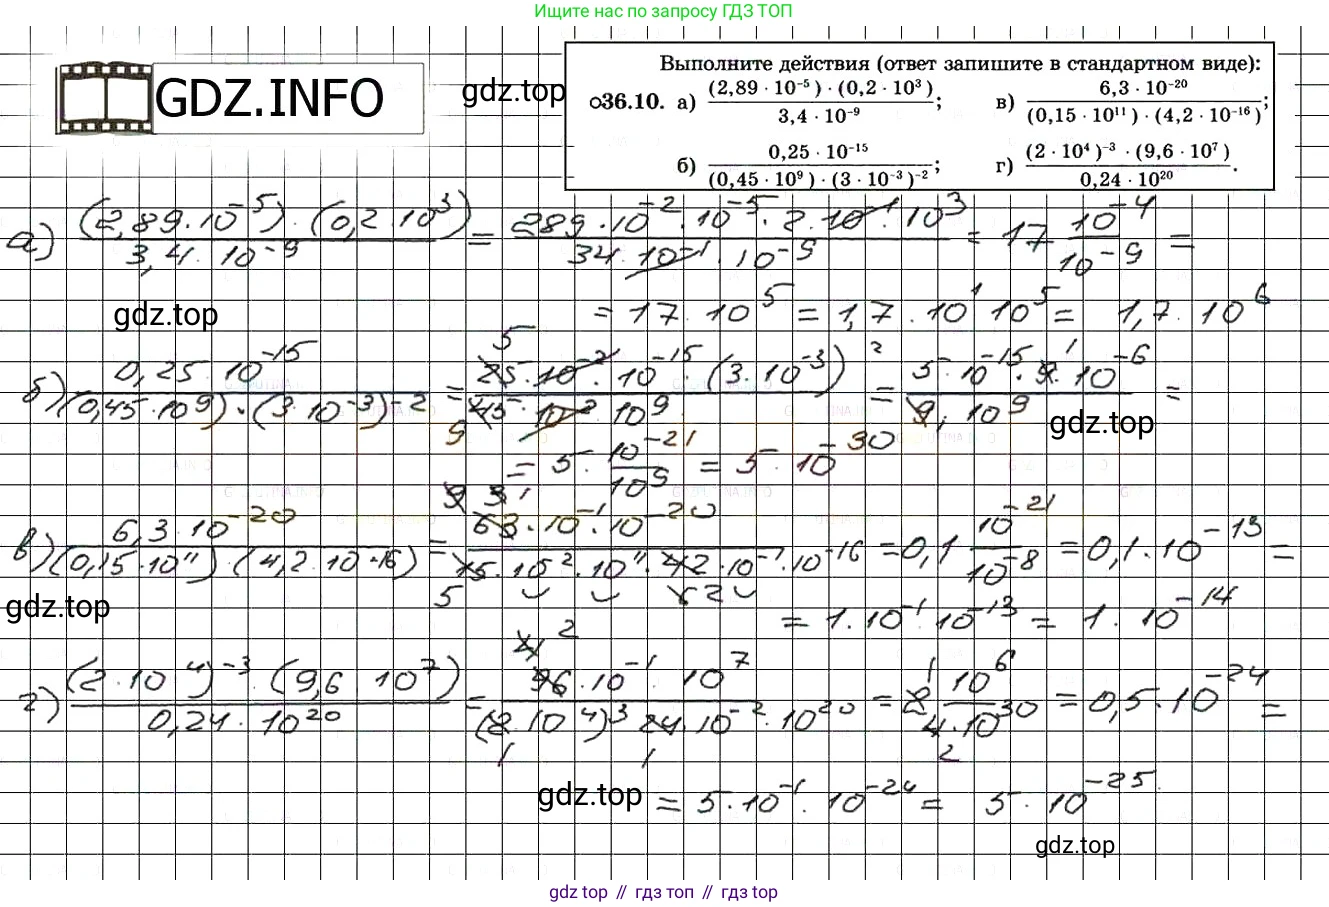 Ищите нас по запросу ГДЗ ТОП
GDZ.INFO
gdz.top
Выполните действия (ответ запишите в стандартном виде):
о36.10. а) (2,89 · 10⁻⁵) · (0,2 · 10³) / 3,4 · 10⁻⁹; в) 6,3 · 10⁻²⁰ / (0,15 · 10¹¹) · (4,2 · 10⁻¹⁶);
б) 0,25 · 10⁻¹⁵ / (0,45 · 10⁹) · (3 · 10⁻³)⁻²; г) (2 · 10⁴)⁻³ · (9,6 · 10⁷) / 0,24 · 10²⁰.
а) (2,89 · 10⁻⁵) · (0,2 · 10³) / 3,4 · 10⁻⁹ = 289 · 10⁻² · 10⁻⁵ · 2 · 10⁻¹ · 10³ / 34 · 10⁻¹ · 10⁻⁹ = 17 10⁻⁴ / 10⁻⁹ =
gdz.top
= 17 · 10⁵ = 1,7 · 10¹ 10⁵ = 1,7 · 10⁶
б) 0,25 · 10⁻¹⁵ / (0,45 · 10⁹) · (3 · 10⁻³)⁻² = 25 · 10⁻² · 10⁻¹⁵ · (3 · 10⁻³)² / 45 · 10⁻² · 10⁹ = 5 · 10⁻¹⁵ · 9 · 10⁻⁶ / 9 · 10⁹ =
gdz.top
= 5 · 10⁻²¹ / 10⁹ = 5 · 10⁻³⁰
в) 6,3 · 10⁻²⁰ / (0,15 · 10¹¹) · (4,2 · 10⁻¹⁶) = 63 · 10⁻¹ · 10⁻²⁰ / 15 · 10⁻² · 10¹¹ · 42 · 10⁻¹ · 10⁻¹⁶ = 0,1 10⁻²¹ / 10⁻⁸ = 0,1 · 10⁻¹³ =
gdz.top
= 1 · 10⁻¹ · 10⁻¹³ = 1 · 10⁻¹⁴
г) (2 · 10⁴)⁻³ · (9,6 · 10⁷) / 0,24 · 10²⁰ = 96 · 10⁻¹ · 10⁷ / (2 · 10⁴)³ 24 · 10⁻² · 10²⁰ = 2 10⁶ / 4 · 10³⁰ = 0,5 · 10⁻²⁴ =
gdz.top
= 5 · 10⁻¹ · 10⁻²⁴ = 5 · 10⁻²⁵
gdz.top
gdz top // гдз топ // gdz top